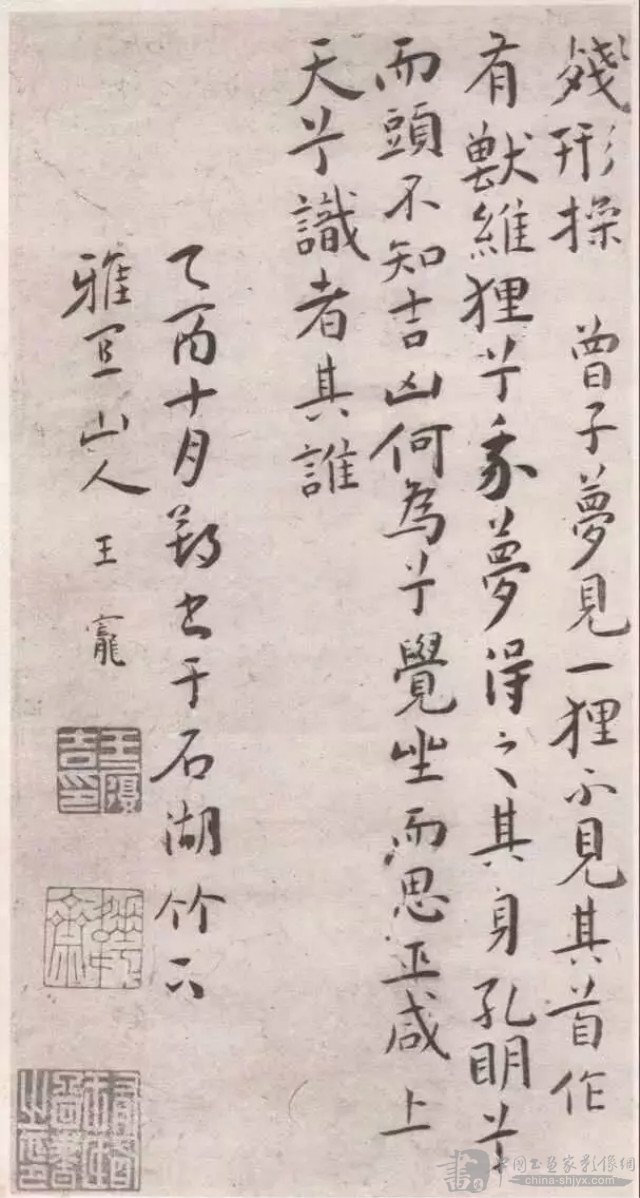 殘形操 曾子夢見一狸不見其首作
有獸維狸兮我夢得之其身孔明兮
而頭不知吉凶何為兮覺坐而思巫咸上
天兮識者其誰
乙酉十月望書于石湖竹下
雅宜山人王寵
中國書畫家影像網
china-shjyx.com